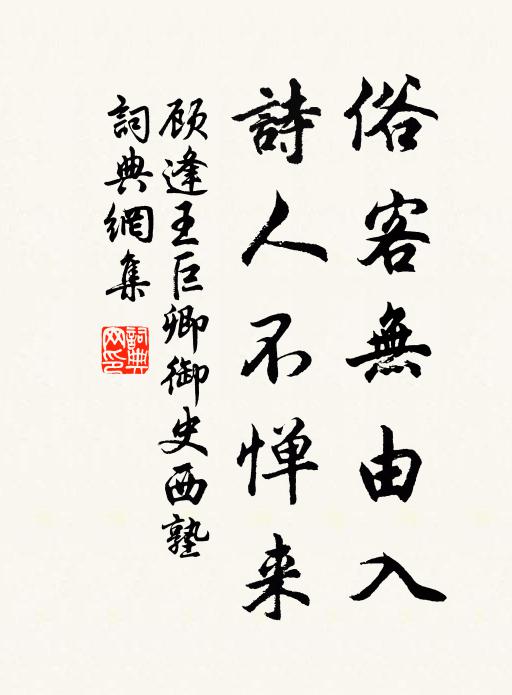 俗客無由入
詩人不惮来
顾逢王巨卿御史西塾
詞典網集
詞典网印